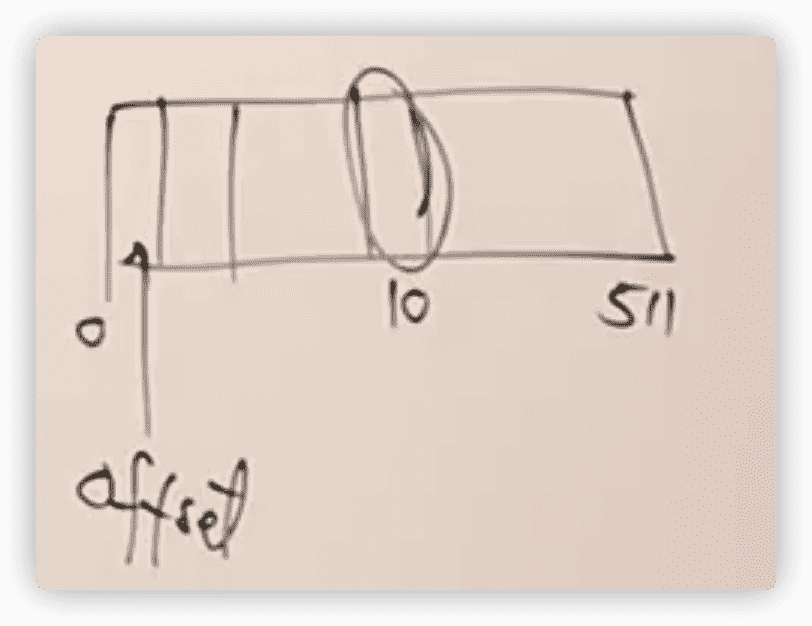 0 10 511
offset